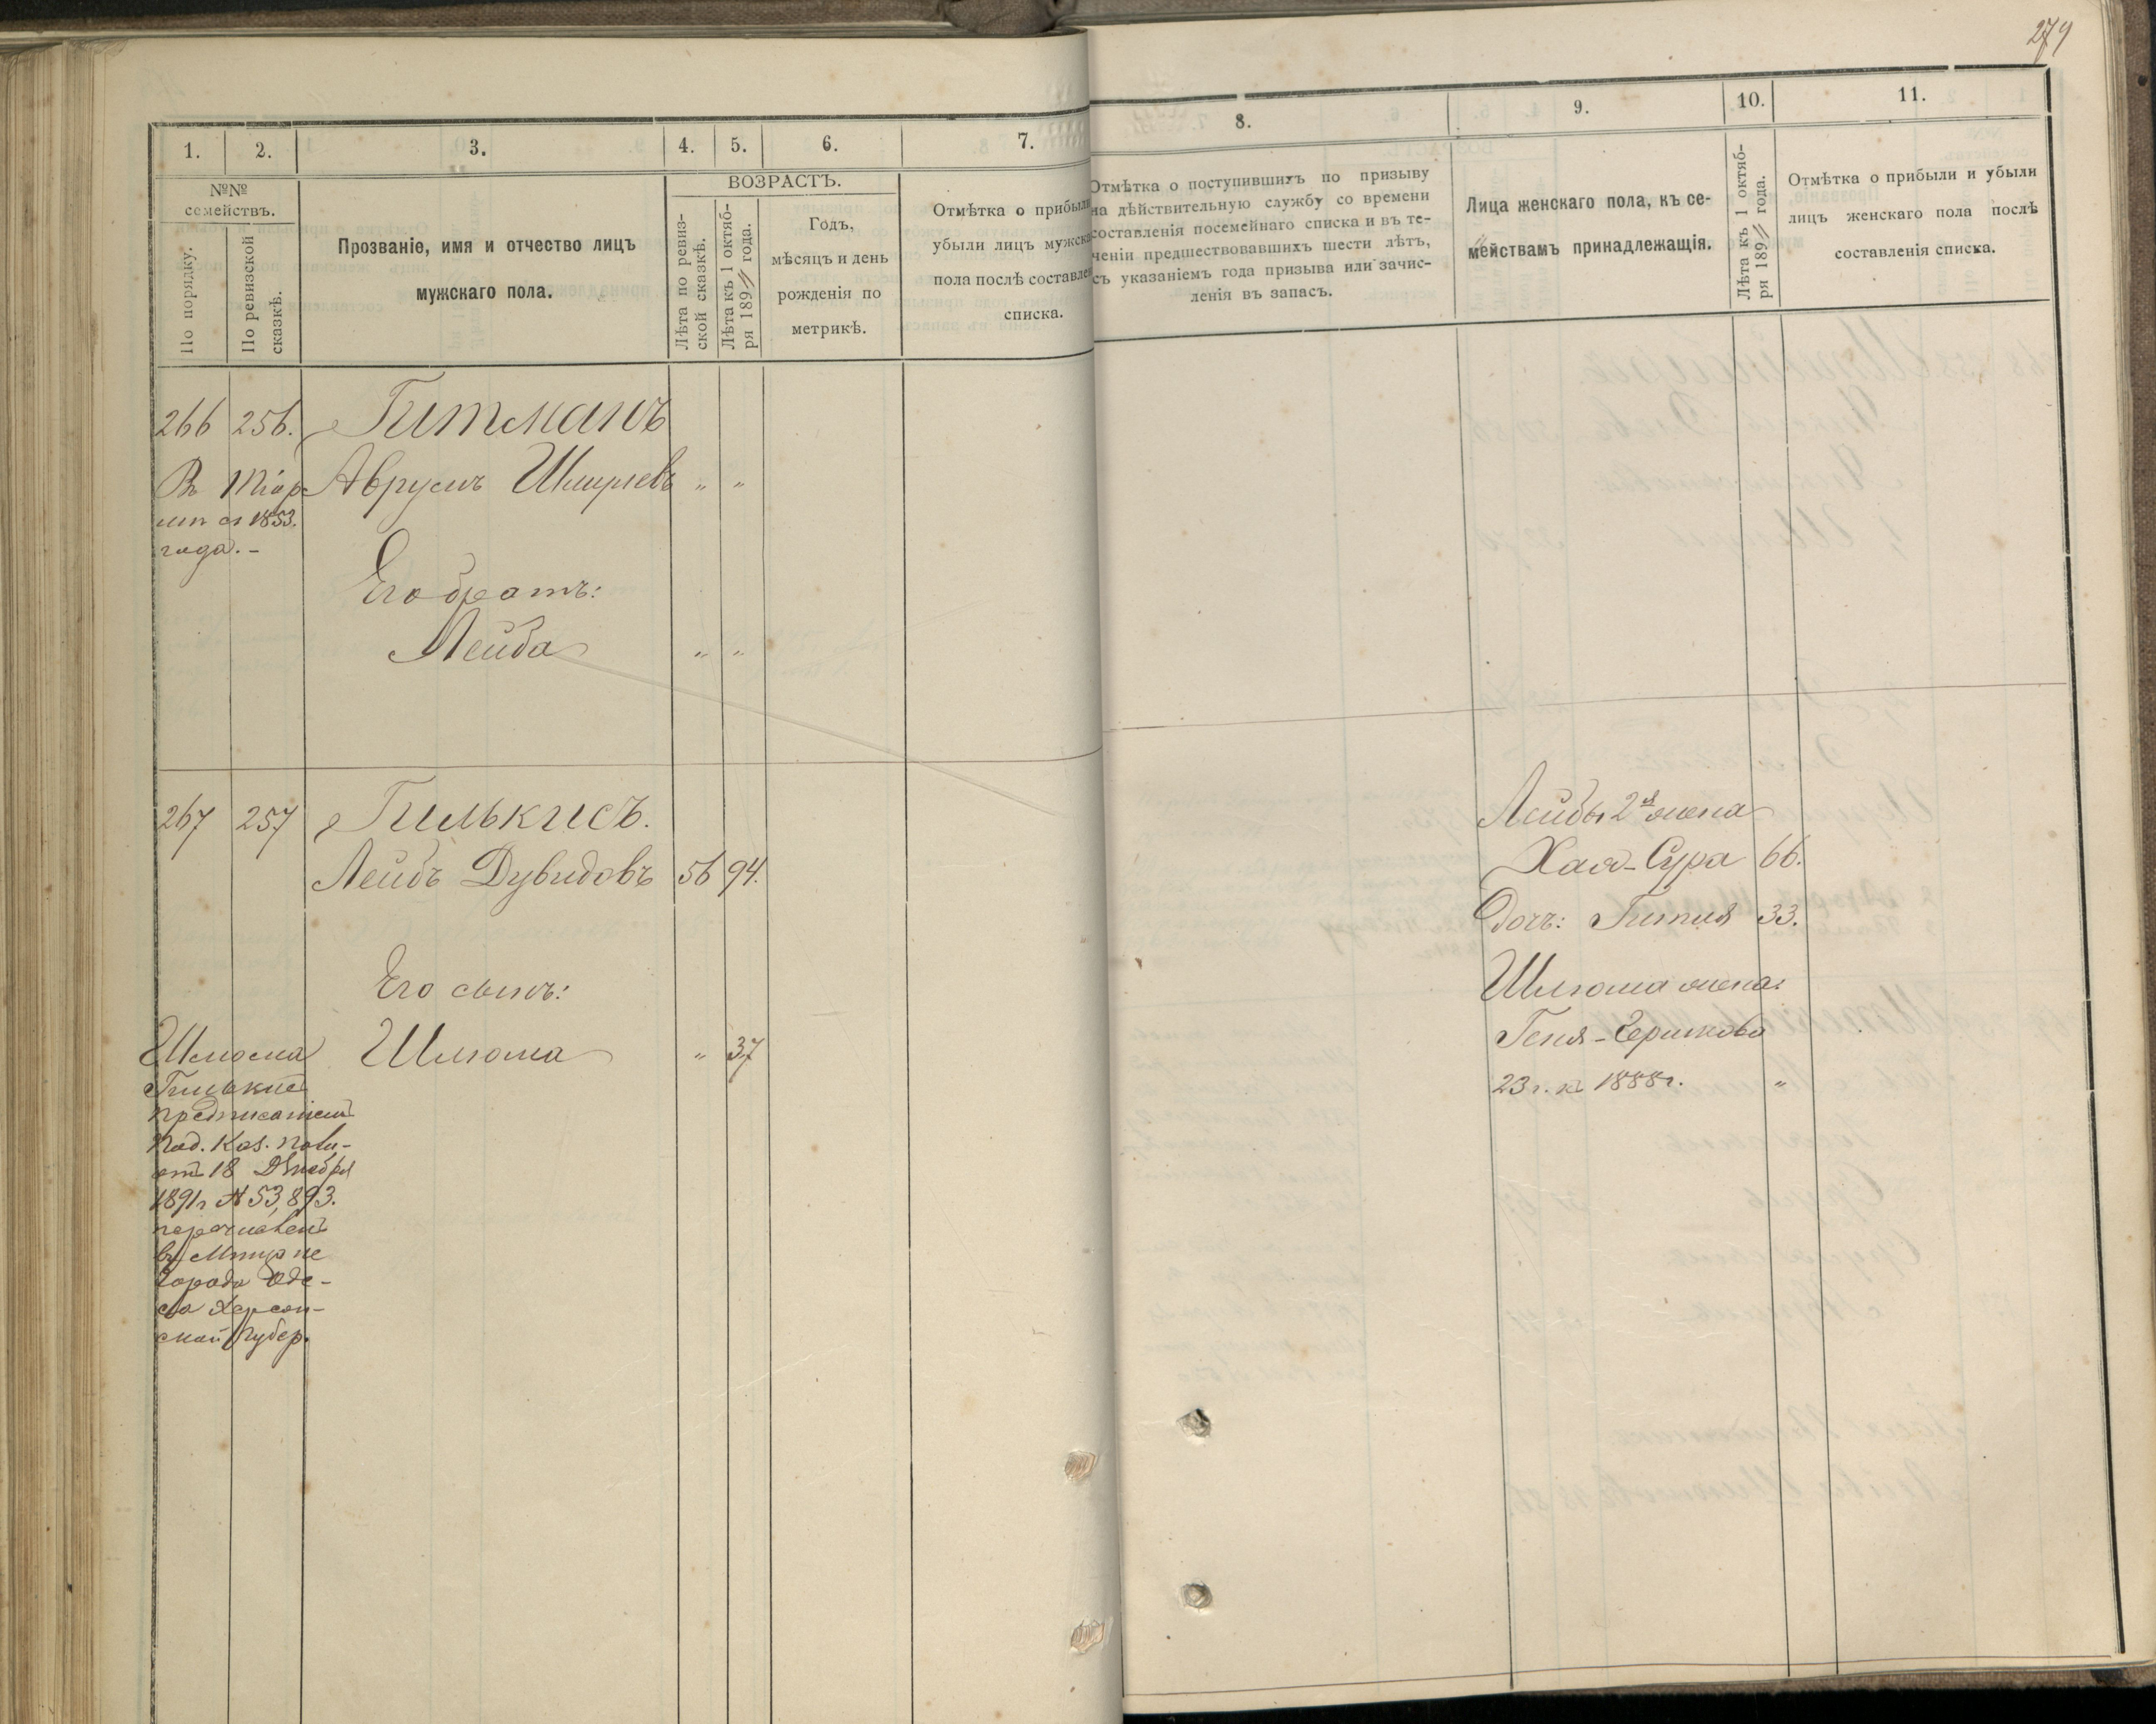 279
1. 2. 3. 4. 5. 6. 7. 8. 9. 10. 11.
№№ семействъ.
По порядку.
По ревизской сказкѣ.
Прозваніе, имя и отчество лицъ
мужскаго пола.
ВОЗРАСТЪ.
Лѣта по ревиз-
ской сказкѣ.
Лѣта къ 1 октяб-
ря 189 года.
Годъ,
мѣсяцъ и день
рожденія по
метрикѣ.
Отмѣтка о прибыли
убыли лицъ мужска
пола послѣ составлен
списка.
Отмѣтка о поступившихъ по призыву
на дѣйствительную службу со времени
составленія посемейнаго списка и въ те-
ченіи предшествовавшихъ шести лѣтъ,
съ указаніемъ года призыва или зачис-
ленія въ запасъ.
Лица женскаго пола, къ се-
мействамъ принадлежащія.
Лѣта къ 1 октяб-
ря 189 года.
Отмѣтка о прибыли и убыли
лицъ женскаго пола послѣ
составленія списка.
266 256. Гитманъ
Аврумъ Шмулевъ " "
съ 1853.
года.-
Его братъ:
Лейба " "
267 257 Гилькисъ.
Лейбъ Дувидовъ 56 94.
Его сынъ:
Шлюма " 37
Шлюма
Гилькис
предписаніемъ
Под. Каз. Пала.
отъ 18 Декабря
1891 г № 53,893.
перечисленъ
въ Мѣщане
города Оде-
са Херсон-
ской Губер.
Лейбы 2я жена
Хая-Сура 66.
дочь: Гитля 33.
Шлюма жена:
Геня-Бериковa
23 г. къ 1888 г. "